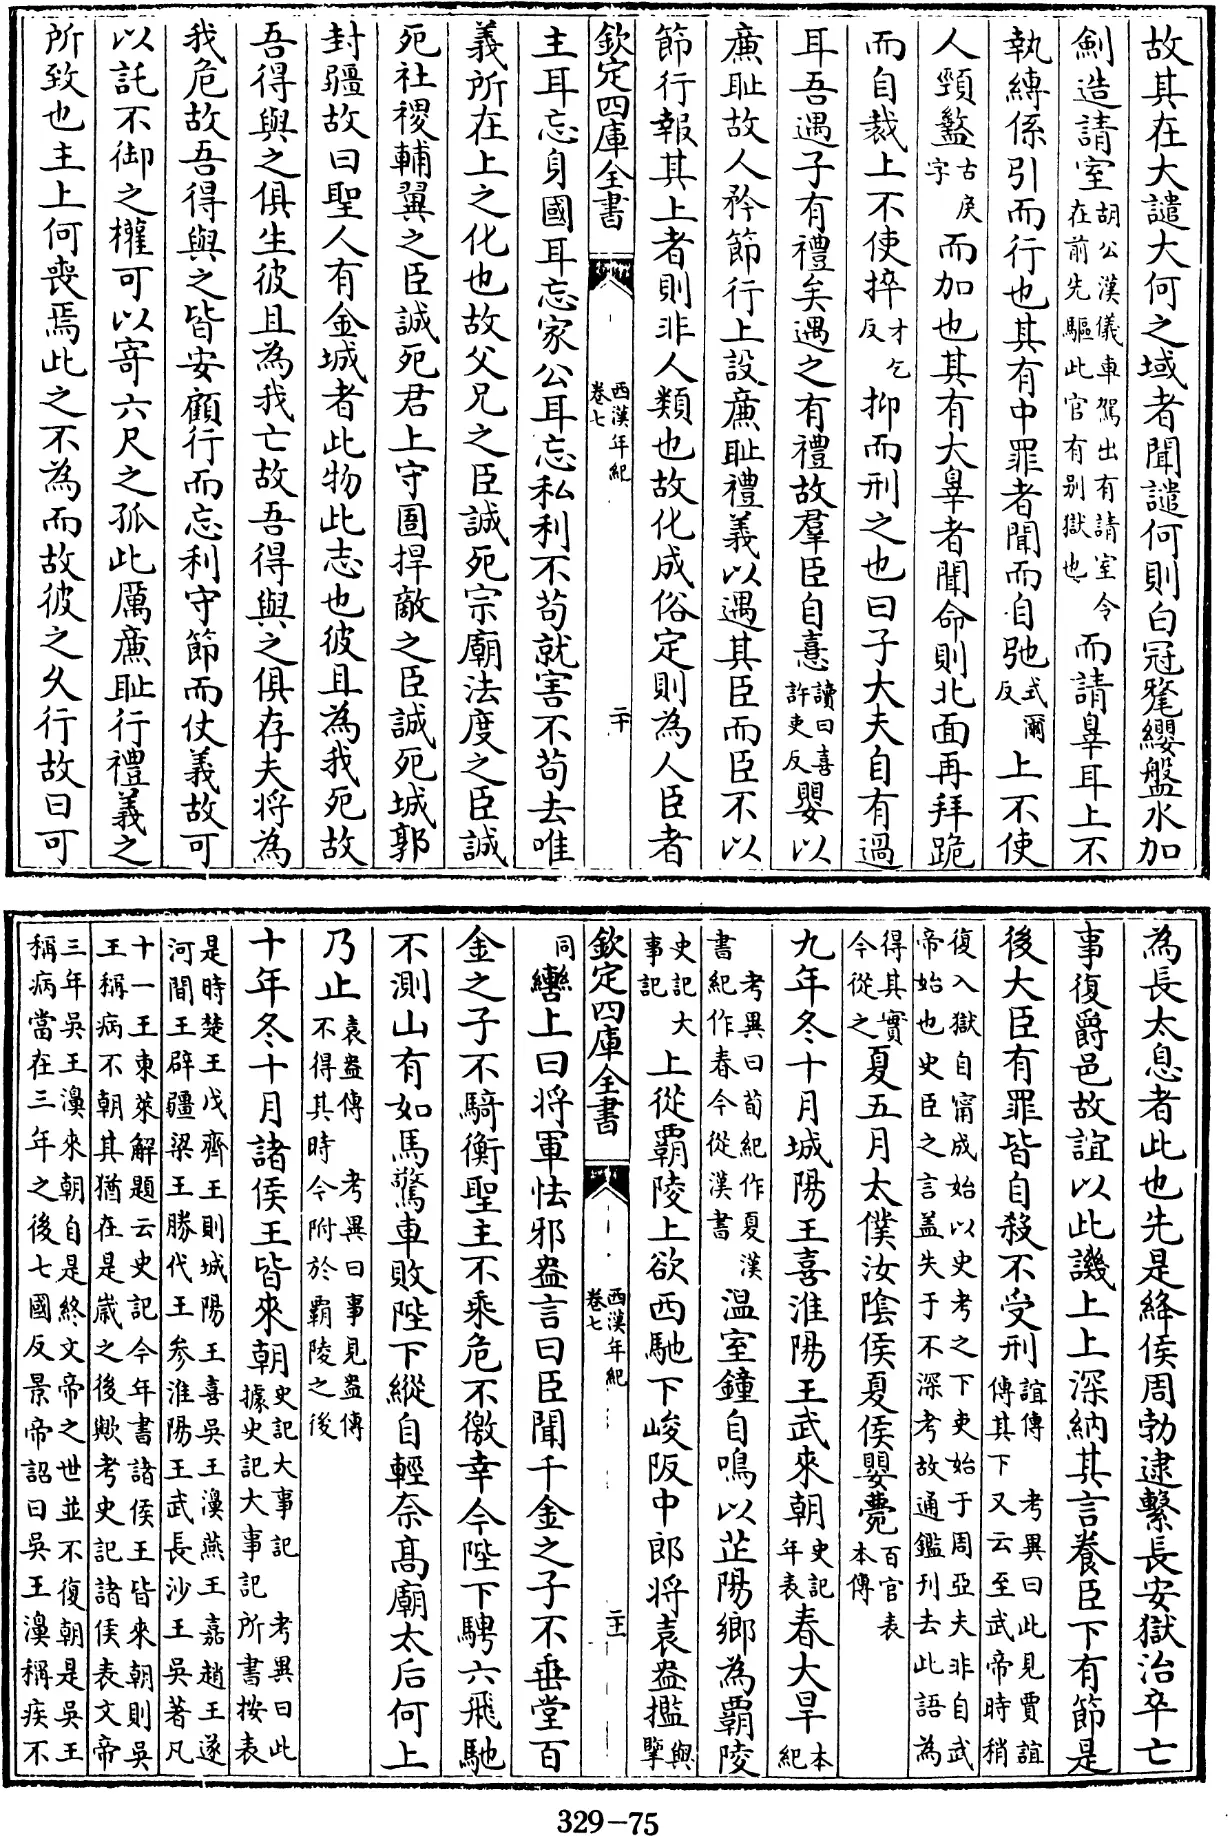 故其在大譴大何之域者聞譴何則白冠氂纓盤水加
劍造請室胡公漢儀車駕出有請室令在前先驅此官有別獄也而請辠耳上不
執縛係引而行也其有中罪者聞而自弛式爾反上不使
人頸盭古戾字而加也其有大辠者聞命則北面再拜跪
而自裁上不使捽才乞反抑而刑之也曰子大夫自有過
耳吾遇子有禮矣遇之有禮故羣臣自憙讀曰喜許吏反嬰以
廉耻故人矜節行上設廉耻禮義以遇其臣而臣不以
節行報其上者則非人類也故化成俗定則為人臣者
欽定四庫全書 西漢年紀卷七 二十
主耳忘身國耳忘家公耳忘私利不苟就害不苟去唯
義所在上之化也故父兄之臣誠死宗廟法度之臣誠
死社稷輔翼之臣誠死君上守圄捍敵之臣誠死城郭
封疆故曰聖人有金城者此物此志也彼且為我死故
吾得與之俱生彼且為我亡故吾得與之俱存夫將為
我危故吾得與之皆安顧行而忘利守節而仗義故可
以託不御之權可以寄六尺之孤此厲廉耻行禮義之
所致也主上何喪焉此之不為而故彼之久行故曰可
為長太息者此也先是絳侯周勃逮繫長安獄治卒亡
事復爵邑故誼以此譏上上深納其言養臣下有節是
後大臣有罪皆自殺不受刑誼傳 考異曰此見賈誼傳其下又云至武帝時稍
復入獄自甯成始以史考之下吏始于周亞夫非自武帝始也史臣之言盖失于不深考故通鑑刊去此語為
得其實今從之夏五月太僕汝陰侯夏侯嬰薨百官表本傳
九年冬十月城陽王喜淮陽王武來朝史記年表春大旱本紀
考異曰荀紀作夏漢書紀作春今從漢書溫室鐘自鳴以芷陽鄉為霸陵
史記大事記上從霸陵上欲西馳下峻阪中郎將袁盎攬與擥
欽定四庫全書 西漢年紀卷七 二十一
同轡上曰將軍怯邪盎言曰臣聞千金之子不垂堂百
金之子不騎衡聖主不乘危不徼幸今陛下騁六飛馳
不測山有如馬驚車敗陛下縱自輕奈高廟太后何上
乃止袁盎傳 考異曰事見盎傳不得其時今附於霸陵之後
十年冬十月諸侯王皆來朝史記大事記 考異曰此據史記大事記所書按表
是時楚王戊齊王則城陽王喜吳王濞燕王嘉趙王遂河間王辟疆梁王勝代王參淮陽王武長沙王吳著凡
十一王東萊解題云史記今年書諸侯王皆來朝則吳王稱病不朝其猶在是歲之後歟考史記諸侯表文帝
三年吳王濞來朝自是終文帝之世並不復朝是吳王稱病當在三年之後七國反景帝詔曰吳王濞稱疾不
329-75